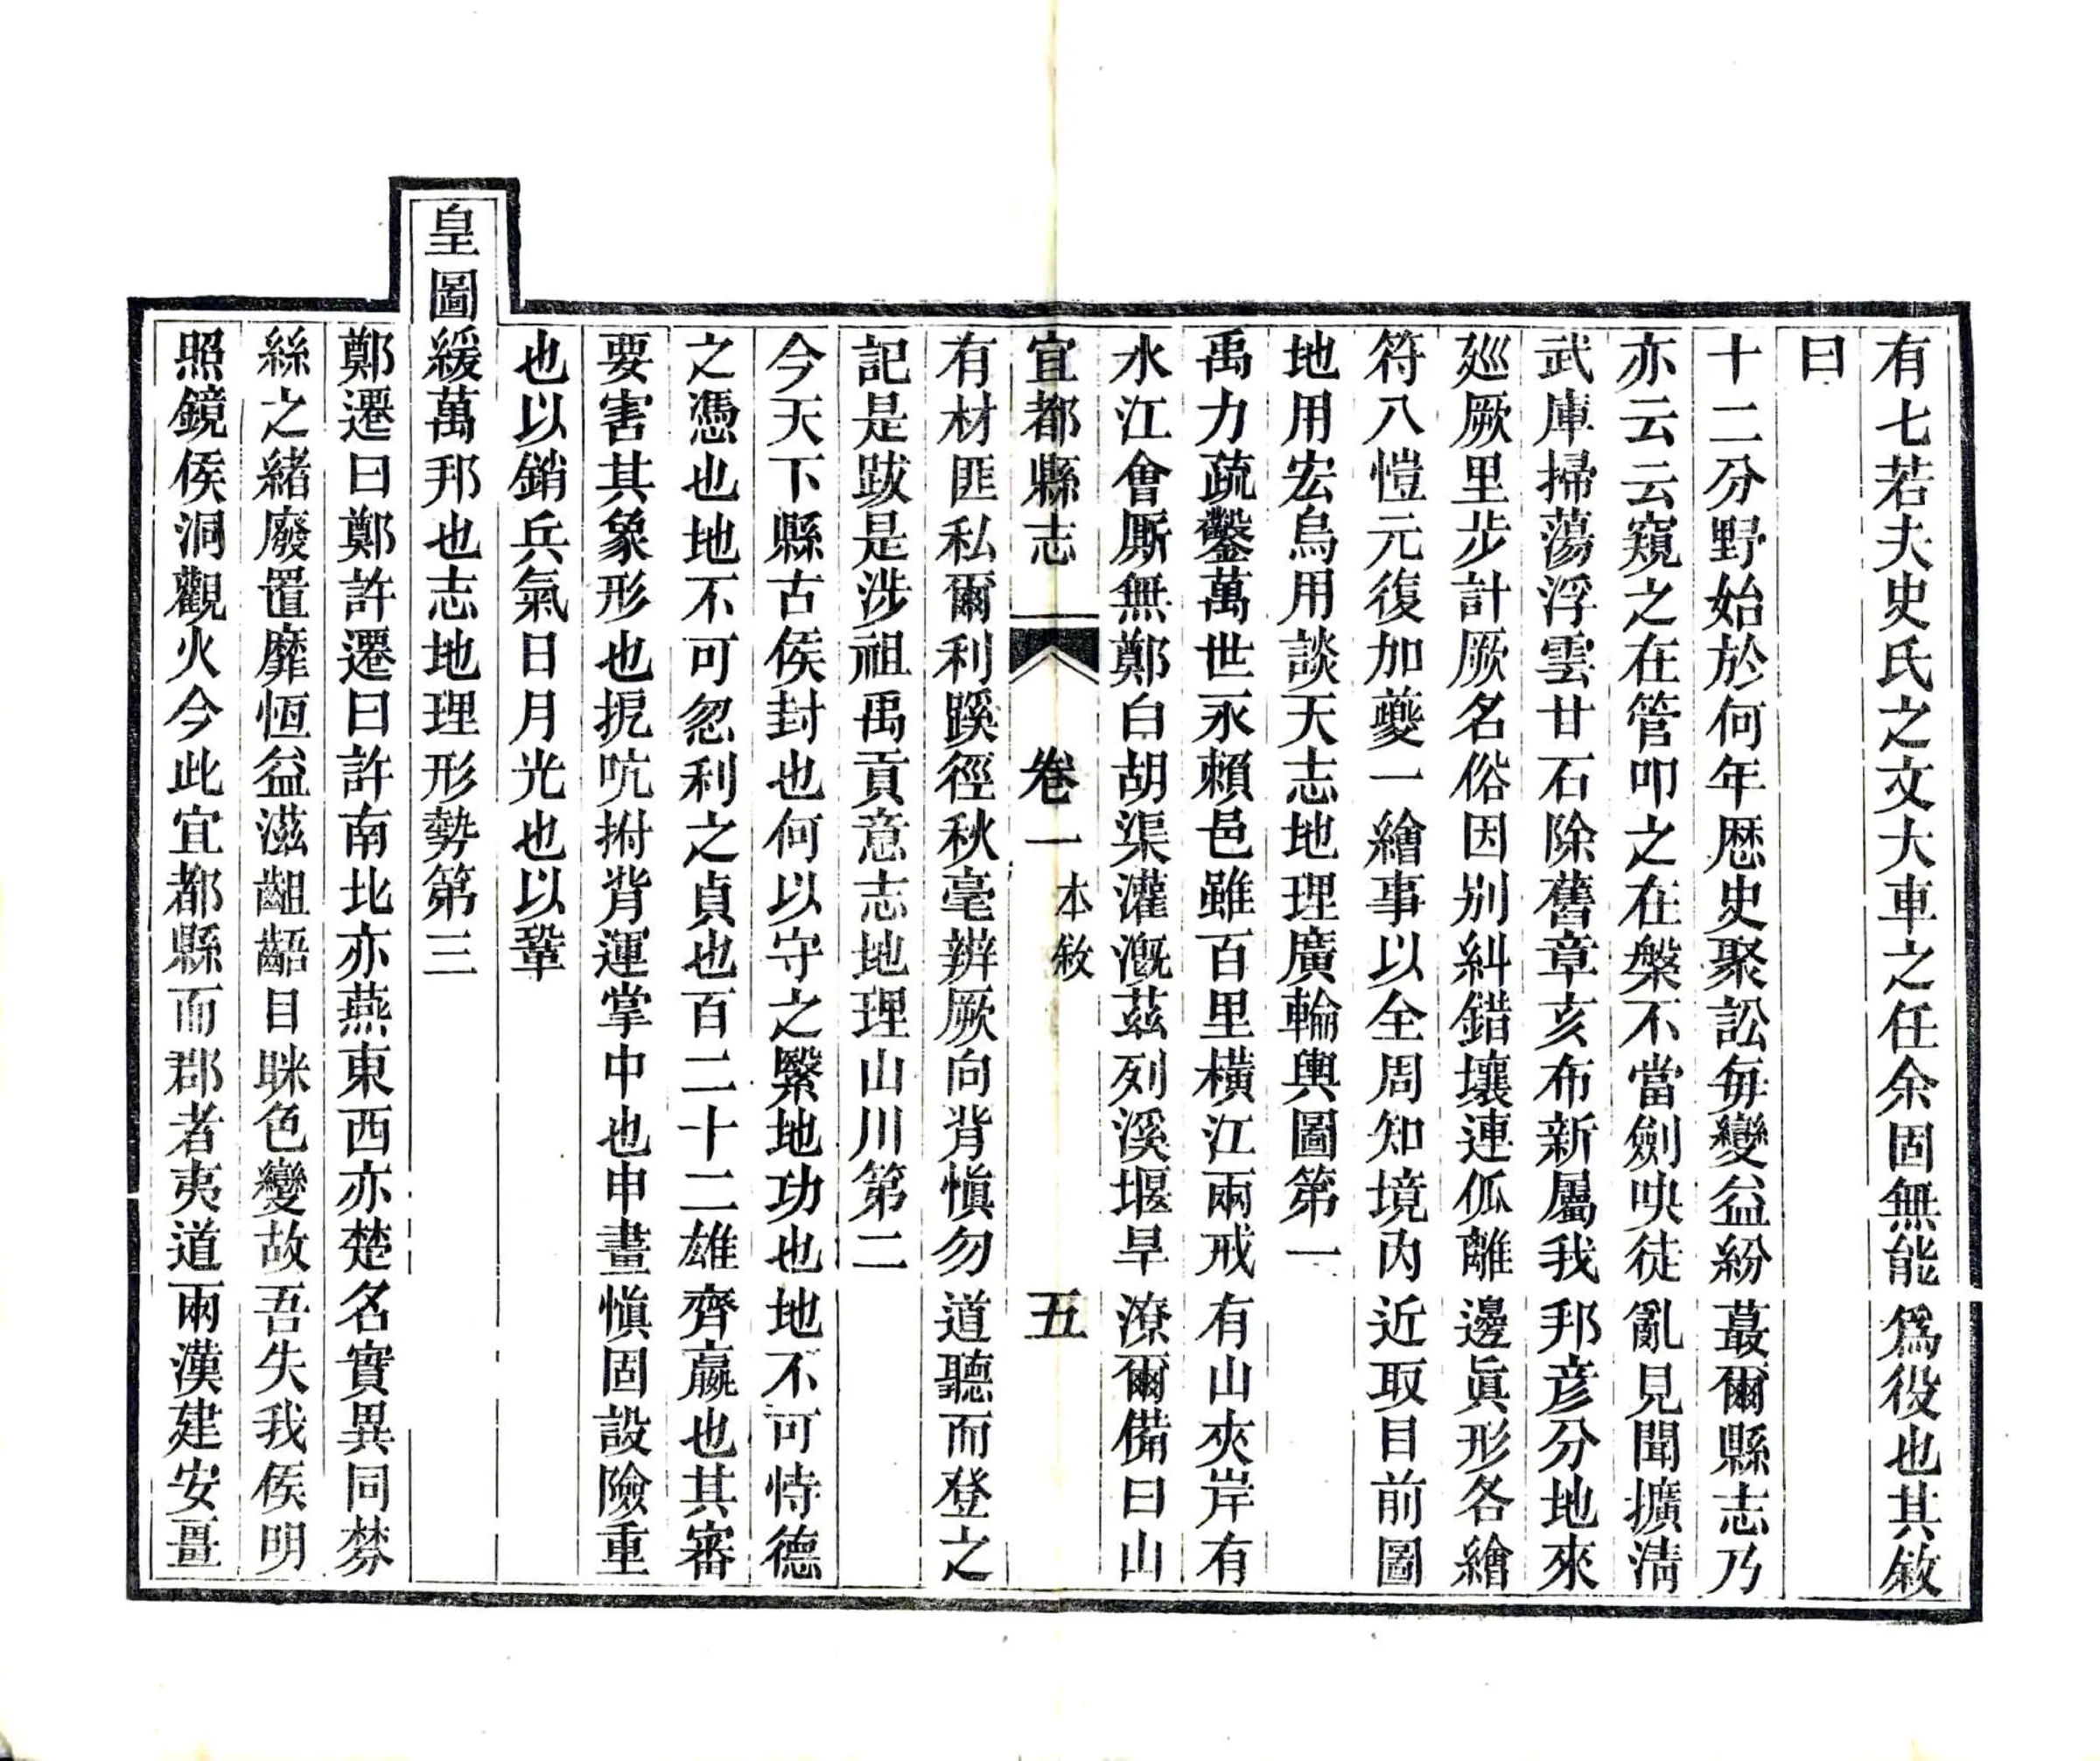 有七若夫史氏之文大車之任余固無能爲役也其敘
曰
十二分野始於何年歷史聚訟每變益紛蕞爾縣志乃
亦云云窺之在管叩之在槃不當劍吷徒亂見聞擴淸
武庫掃蕩浮雲甘石除舊章亥布新屬我邦彥分地來
廵厥里步計厥名俗因别糾錯壤連仾離邊眞形各繪
符八愷元復加夔一繪事以全周知境內近取目前圖
地用宏烏用談天志地理廣輪輿圖第一
禹力疏鑿萬世永賴邑雖百里橫江兩戒有山夾岸有
水江會厮無鄭白胡渠灌漑茲列溪堰旱潦爾備曰山
宜都縣志 卷一 本敘 五
有材匪私爾利蹊徑秋毫辨厥向背愼勿道聽而登之
記是跋是涉祖禹貢意志地理山川第二
今天下縣古侯封也何以守之繄地功也地不可恃德
之憑也地不可忽利之貞也百二十二雄齊嬴也其審
要害其象形也扼吭拊背運掌中也申畫愼固設險重
也以銷兵氣日月光也以鞏
皇圖綏萬邦也志地理形勢第三
鄭遷曰鄭許遷曰許南北亦燕東西亦楚名實異同棼
絲之緒廢置靡恒益滋齟齬目眯色變故吾失我侯明
照鏡侯洞觀火今此宜都縣而郡者夷道兩漢建安畺